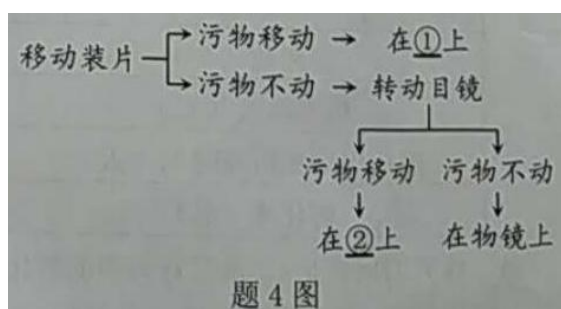 移动装片
污物移动 → 在①上
污物不动 → 转动目镜
污物移动 污物不动
在②上 在物镜上
题4图